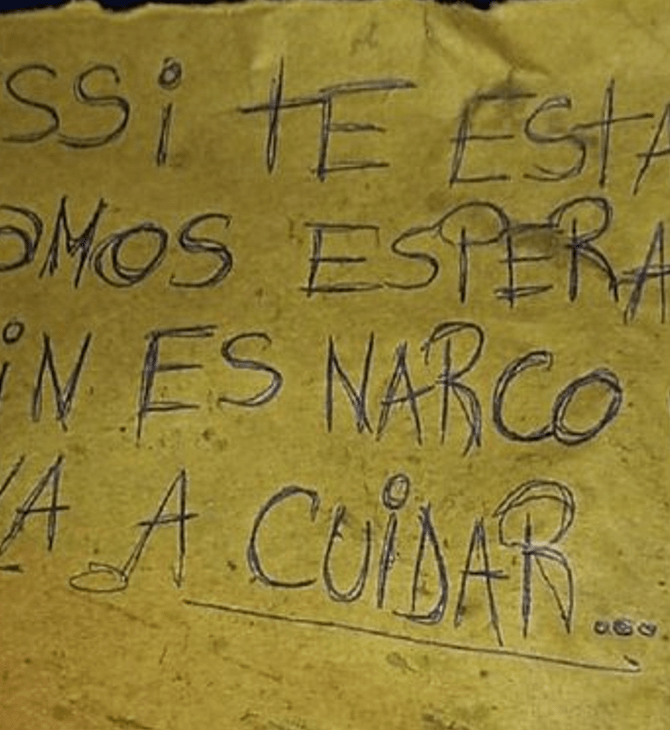 SSi tE ESTA
AMOS ESPERA
iN ES NARCO
VA A CUiDAR...